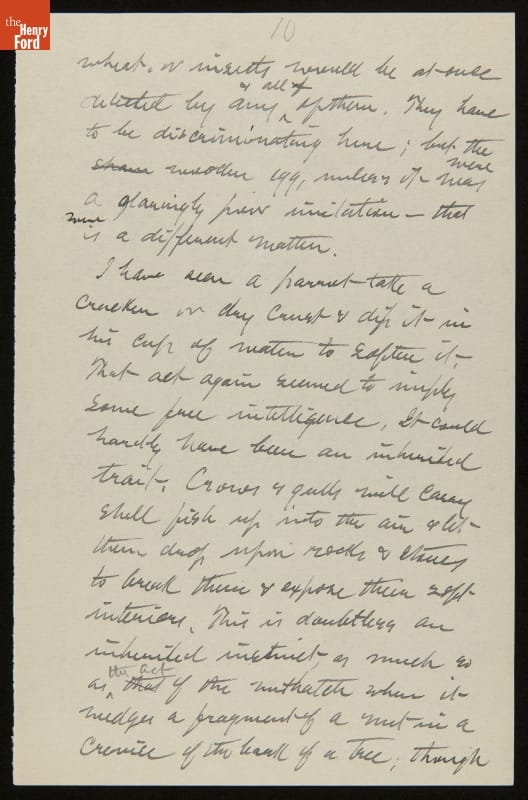 the
Henry
Ford
10
wheat, or insects would be at once
detected by any & all of them. They have
to be discriminating here; but the
sham wooden egg, unless it was were
a glaringly poor imitation — that
is a different matter.
I have seen a parrot take a
cracker or dry crust & dip it in
his cup of water to soften it.
That act again seemed to imply
some free intelligence. It could
hardly have been an inherited
trait. Crows & gulls will carry
shell fish up into the air & let
them drop upon rocks & stones
to break them & expose their soft
interiors. This is doubtless an
inherited instinct, as much so
as that the act of the nuthatch when it
wedges a fragment of a nut in a
crevice of the bark of a tree; though